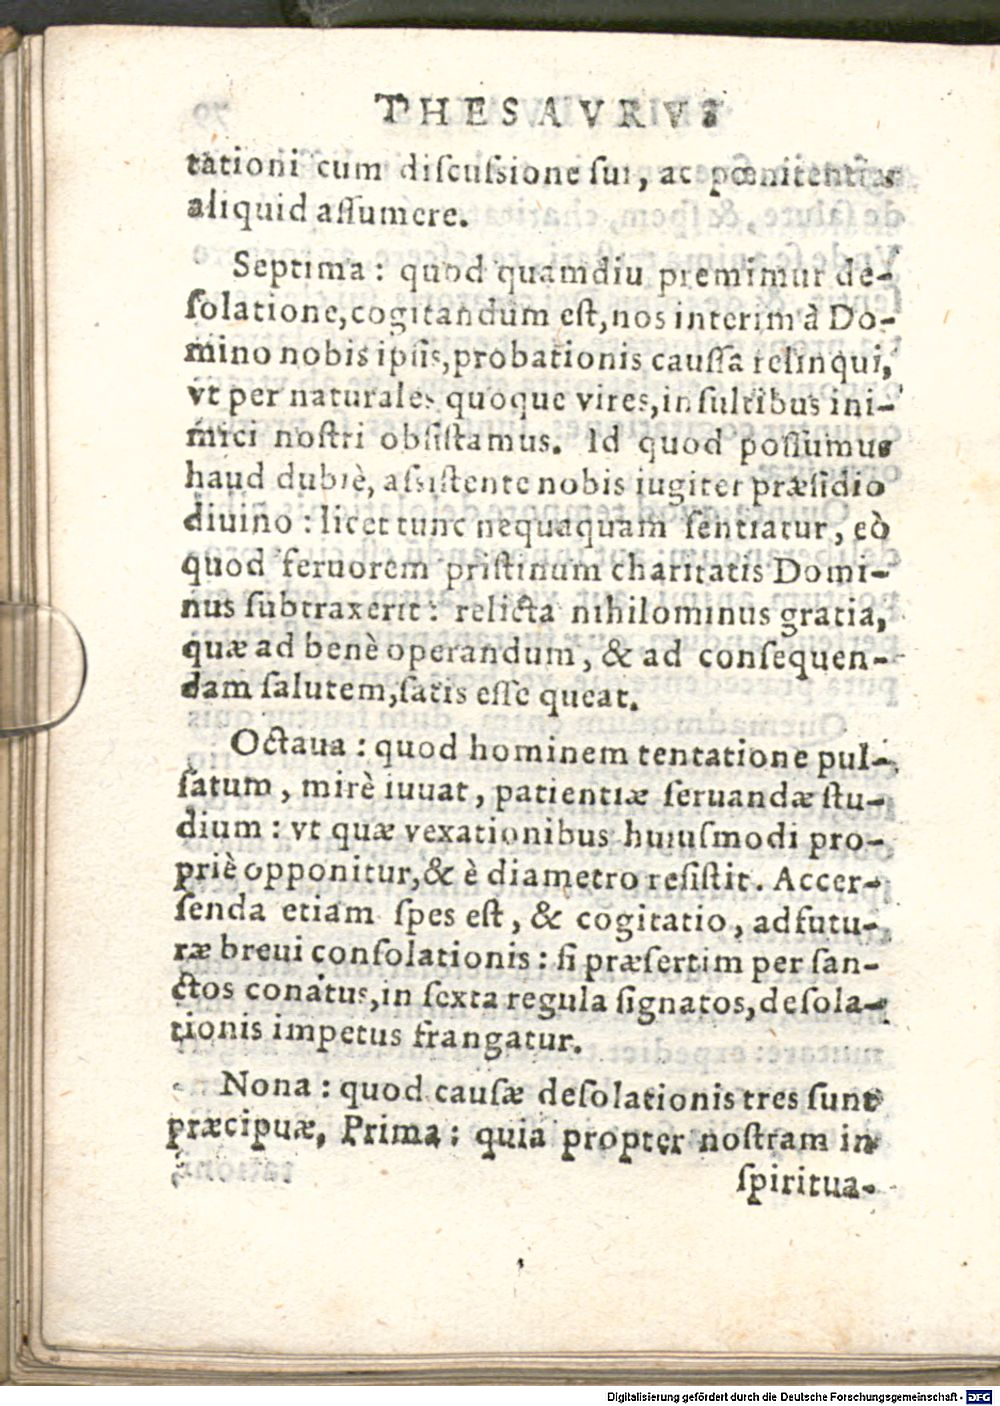 THESAVRVS
tationi cum discussione sui, ac pœnitentiæ
aliquid assumere.
Septima : quod quamdiu premimur de-
solatione, cogitandum est, nos interim à Do-
mino nobis ipsis, probationis caussa relinqui,
vt per naturales quoque vires, insultibus ini-
mici nostri obsistamus. Id quod possumus
haud dubiè, assistente nobis iugiter præsidio
diuino : licet tunc nequaquam sentiatur, eò
quod feruorem pristinum charitatis Domi-
nus subtraxerit : relicta nihilominus gratia,
quæ ad benè operandum, & ad consequen-
dam salutem, satis esse queat.
Octaua : quod hominem tentatione pul-
satum, mirè iuuat, patientiæ seruandæ stu-
dium : vt quæ vexationibus huiusmodi pro-
priè opponitur, & è diametro resistit. Accer-
senda etiam spes est, & cogitatio, adfutu-
ræ breui consolationis : si præsertim per san-
ctos conatus, in sexta regula signatos, desola-
tionis impetus frangatur.
Nona : quod causæ desolationis tres sunt
præcipuæ, Prima : quia propter nostram in
spiritua-
Digitalisierung gefördert durch die Deutsche Forschungsgemeinschaft - DFG